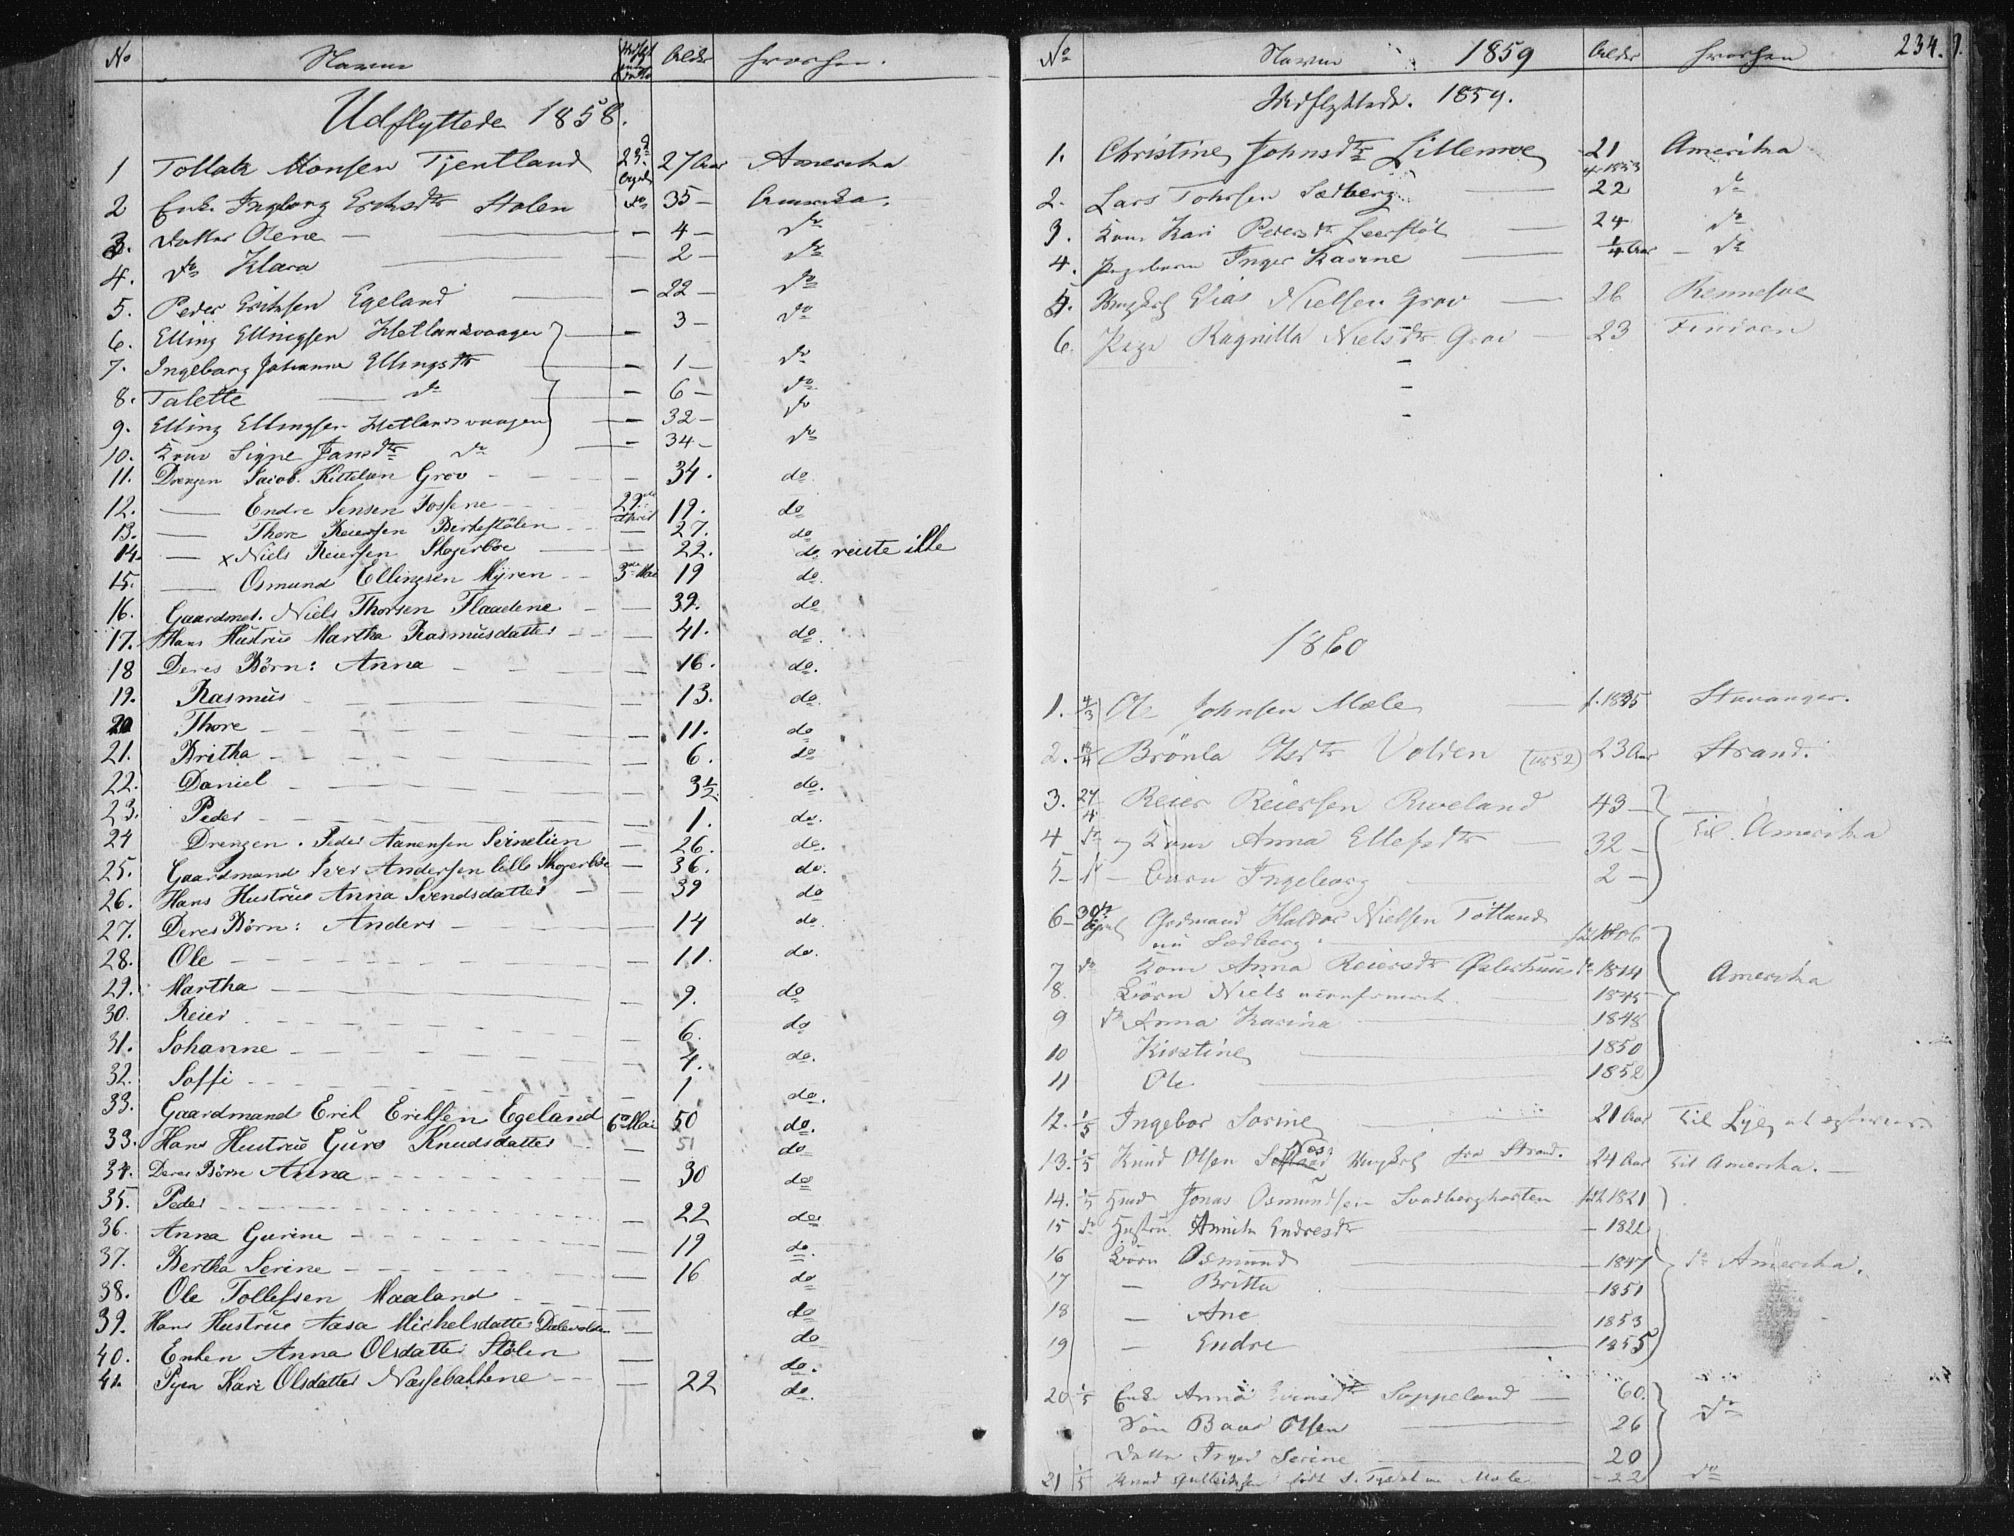 No Navn Alder hvorhen.
Udflyttede 1858.
1 Tollak Monsen Tjentland 23de April 27 Aar Amerika
2 Enke Ingborg Eriksdtr Stølen do 35 – Amerika.
3. Datter Olene — – 4 – do
4. do Klara — – 2 – do
5. Peder Eriksen Egeland — – 22 – do
6. Elling Ellingsen Hetlandsvaagen – 3 – do
7. Ingeborg Johanne Ellingsdtr – 1 – do
8. Talette — do – 6 – do
9. Elling Ellingsen Hetlandsvaagen – 32 – do
10. Kone Signe Jansdtr do – 34 – do
11. Drengen Jacob Kittelsen Grov – 34. do.
12. — Endre Jensen Fossene 29de April 19. do
13. — Thore Reiersen Berkestølen — 27. do
14. — x Niels Reiersen Skogerbøe — 22. do reiste ikke
15. — Osmund Ellingsen Myren 3die Mai 19 do.
16. Gaardmd. Niels Thorsen Flaadene — 39. do
17. Hans Hustrue Martha Rasmusdatter — 41. do.
18 Deres Børn: Anna — 16. do.
19. Rasmus — 13. do.
20 Thore — 11. do
21. Britha — 6. do
22. Daniel — 3½. do.
23. Peder — 1. do.
24 Drengen. Peder Aanensen — 26. do.
25. Gaardmand Iver Andersen lille Skogerbøe — 36. do.
26. Hans Hustrue Anna Svendsdatter — 39 do
27. Deres Børn: Anders — 14 do.
28. Ole — 11. do.
29. Martha — 9. do
30. Reier — 6. do
31. Johanne — 4. do.
32. Soffi — 1 do.
33. Gaardmand Erik Eriksen Egeland 6te Mai 50 do.
33. Hans Hustrue Guro Knudsdatter — 51 do
34. Deres Børn Anna — 30 do
35. Peder — 22 do
36. Anna Gurine — 19 do.
37. Bertha Serine — 16 do
38. Ole Tollefsen Maaland — do
39. Hans Hustrue Aasa Michelsdatter — do
40. Enken Anna Olsdatter Stølen — do.
41. Pigen Kari Olsdatter Næssebakkene — 22 do.
No Navn 1859 Alder hvorhen 234.
Udflyttede. 1859.
1. Christine Johnsdtr Lillemoe 21 Amerika
2. Lars Tohrsen Sedberg — 22 do
3. Kone Kari Pedersdtr — 24 do
4. Pigebarn Inger Karine — ¼ Aar – do
5. Ungkarl Elias Nielsen Grov — 26 Rennesøe
6. Pige Ragnilla Nielsdtr Grov — 23 Findøen
1860
1. 4/3 Ole Johnsen Mæle — f. 1835 Stavanger.
2. Brönla Olsdtr Volden (1852) 23 Aar Strand.
3. 24/4 Reier Reiersen Rweland 43 –
4 do og Kone Anna Ellefsdtr — 32 – til Amerika
5 – do – Barn Ingeborg — 2 –
6 – 30te April Grdmand Haldor Nielsen Tötland
nu Sædberg. — født 1806
7 do Kone Anna Reiersdtr Østerhuus do 1814 Amerika
8. Børn Niels — 1845
9 do Anna Karina — 1848
10 Kirstine — 1850
11 Ole — 1852
12. 1/5 Ingebor Sorine — 21 Aar
13. 1/5 Knud Olsen Ungkarl fra Strand. 24 Aar til Amerika. —
14. 1/5 Jonas Osmundsen Svadberghorten født 1821
15 do Hustru Endresdtr — 1822
16 Børn Osmund — 1847 do Amerika.
17 – Britta — 1851
18 – Ane — 1853
19 – Endre — 1855
20 1/5 Enke Anna Soppeland — 60.
Søn Baar Olsen — 26 do
Datter Inger Serine — 20
21 1/5 Knud — 22 do